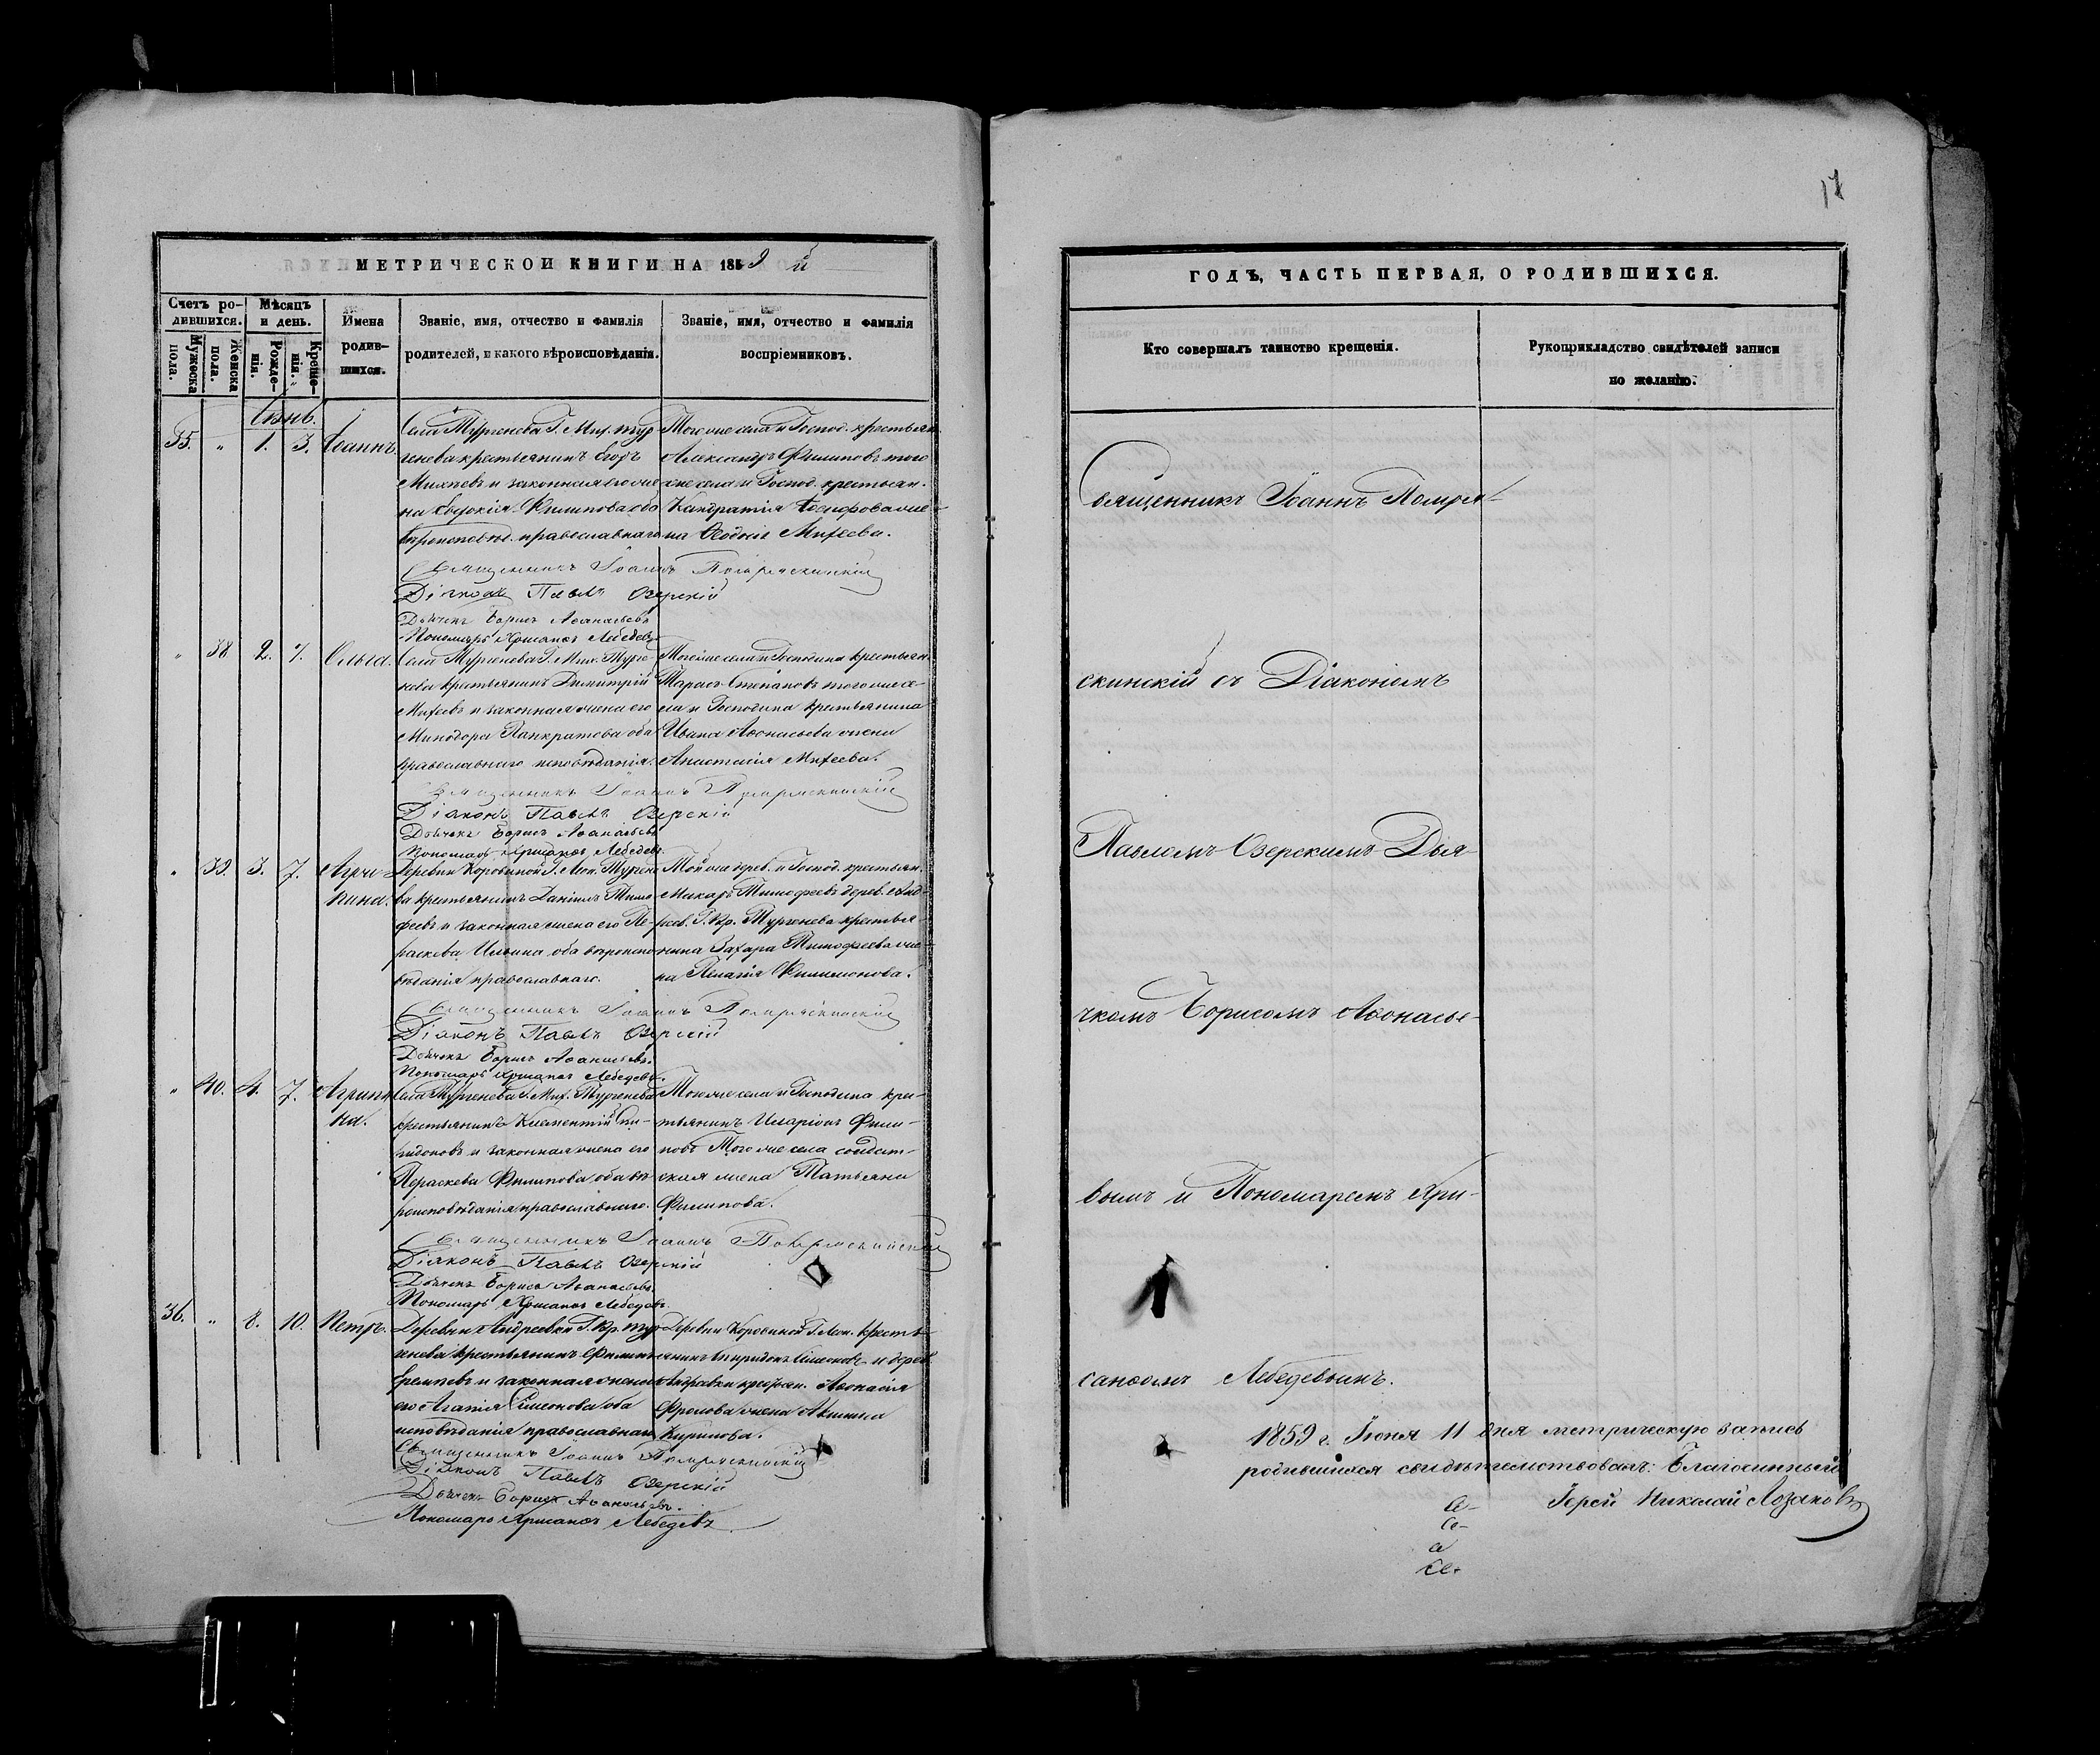 17
МЕТРИЧЕСКОЙ КНИГИ НА 1859 й
Счетъ ро-
дившихся.
Мужеска
пола.
Женска
пола.
Мѣсяцъ
и день.
Рожде-
нія.
Креще-
нія.
Имена
родив-
шихся.
Званіе, имя, отчество и фамилія
родителей, и какого вѣроисповѣданія.
Званіе, имя, отчество и фамилія
воспріемниковъ.
Іюнь.
35. " 1. 3. Іоаннъ.
Села Тургенева Г. Мих. Тур-
генева крестьянинъ
Михѣевъ и законная его же-
на Евдокія Филипова оба
вѣроисповѣд. православнаго
Того же села и Господ. крестьян.
Александръ Филиповъ того
же села и Господ. крестьян.
Кандратія Іосифова же-
на Михеева.
Священникъ Іоаннъ
Діаконъ Павлъ Озерскій
Дьячекъ Борисъ Аѳанасьевъ
Пономарь Хрисанѳъ Лебедевъ
" 38 2. 7. Ольга.
Села Тургенева Г. Мих. Турге-
нева крестьянинъ Димитрій
Михеевъ и законная жена его
Минодора Панкратова оба
православнаго исповѣданія.
Того же села и Господина крестьян.
Тарасъ Степановъ того же се-
ла и Господина крестьянина
Ивана Аѳонасьева жена
Анастасія Михеева.
Священникъ Іоаннъ
Діаконъ Павлъ Озерскій
Дьячекъ Борисъ Аѳанасьевъ
Пономарь Хрисанѳъ Лебедевъ.
" 39. 3. 7. Агри-
пина.
Деревни Коровиной Г. Тургене-
ва крестьянинъ Даніилъ Тимо-
феевъ и законная жена его Па-
раскева Ильина оба вѣроиспо-
вѣданія православнаго.
Той же дерев. и Господ. крестьян.
Макаръ Тимофеевъ дерев. Анд-
реев. Г. Кр. Тургенева крестья-
нина Захара Тимофеева же-
на Пелагія Филимонова.
Священникъ Іоаннъ
Діаконъ Павлъ Озерскій
Дьячекъ Борисъ Аѳанасьевъ.
Пономарь Хрисанѳъ Лебедевъ.
" 40. 4. 7. Агрипи-
на.
Села Тургенева Г. Мих. Тургенева
крестьянинъ Климентій Спи-
ридоновъ и законная жена его
Параскева Филипова оба вѣ-
роисповѣданія православнаго.
Того же села и Господина кре-
стьянинъ Иларіонъ Фили-
повъ Того же села солдат-
ская жена Татьяна
Филипова.
Священникъ Іоаннъ
Діаконъ Павлъ Озерскій
Дьячекъ Борисъ Аѳанасьевъ.
Пономарь Хрисанѳъ Лебедевъ.
36. " 8. 10. Петръ.
Деревни Андреевки Г. Кр. Тур-
генева крестьянинъ Филипъ
и законная жена
его Агапія Симеонова оба
исповѣданія православнаго
Деревни Коровиной Г. крестъ-
янинъ Спиридонъ Симеоновъ и дерев.
Андреевки крестьян. Аѳонасія
Фролова жена Акилина
Кирилова.
Священникъ Іоаннъ
Діаконъ Павлъ Озерскій
Дьячекъ Борисъ Аѳанасьевъ.
Пономарь Хрисанѳъ Лебедевъ
ГОДЪ, ЧАСТЬ ПЕРВАЯ, О РОДИВШИХСЯ.
Кто совершалъ таинство крещенія.
Рукоприкладство свидѣтелей записи
по желанію.
Священникъ Іоаннъ
скинскій съ Діакономъ
Павломъ Озерскимъ Дья-
чкомъ Борисомъ Аѳонасье-
вымъ и Пономаремъ Хри-
санѳомъ Лебедевымъ.
1859 г. Іюня 11 дня метрическую запись
родившихся свидѣтельствовалъ: Благочинный
Іерей Николай